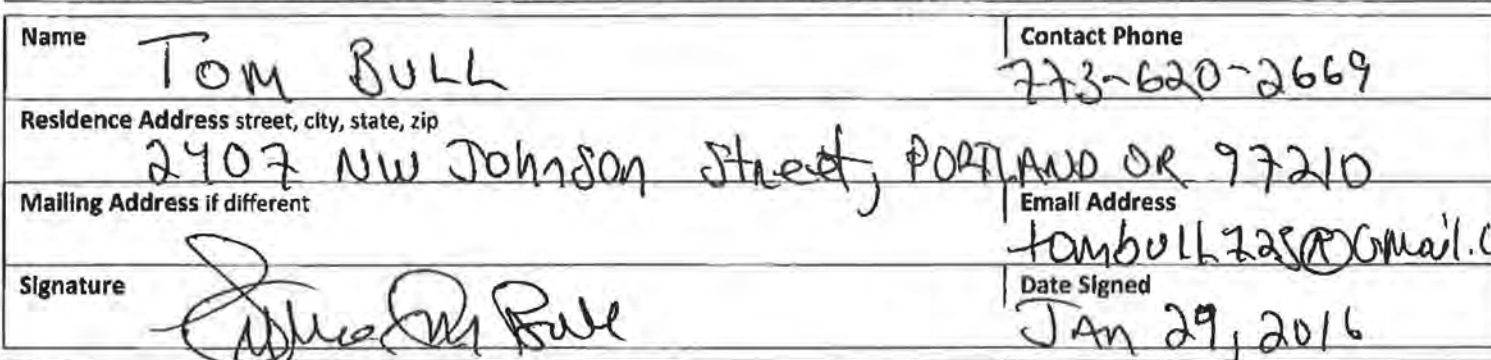 Name Contact Phone
TOM BULL 773-620-2669
Residence Address street, city, state, zip
2407 NW Johnson Street, PORTLAND OR 97210
Mailing Address if different Email Address
Signature Date Signed
Bull JAN 29, 2016